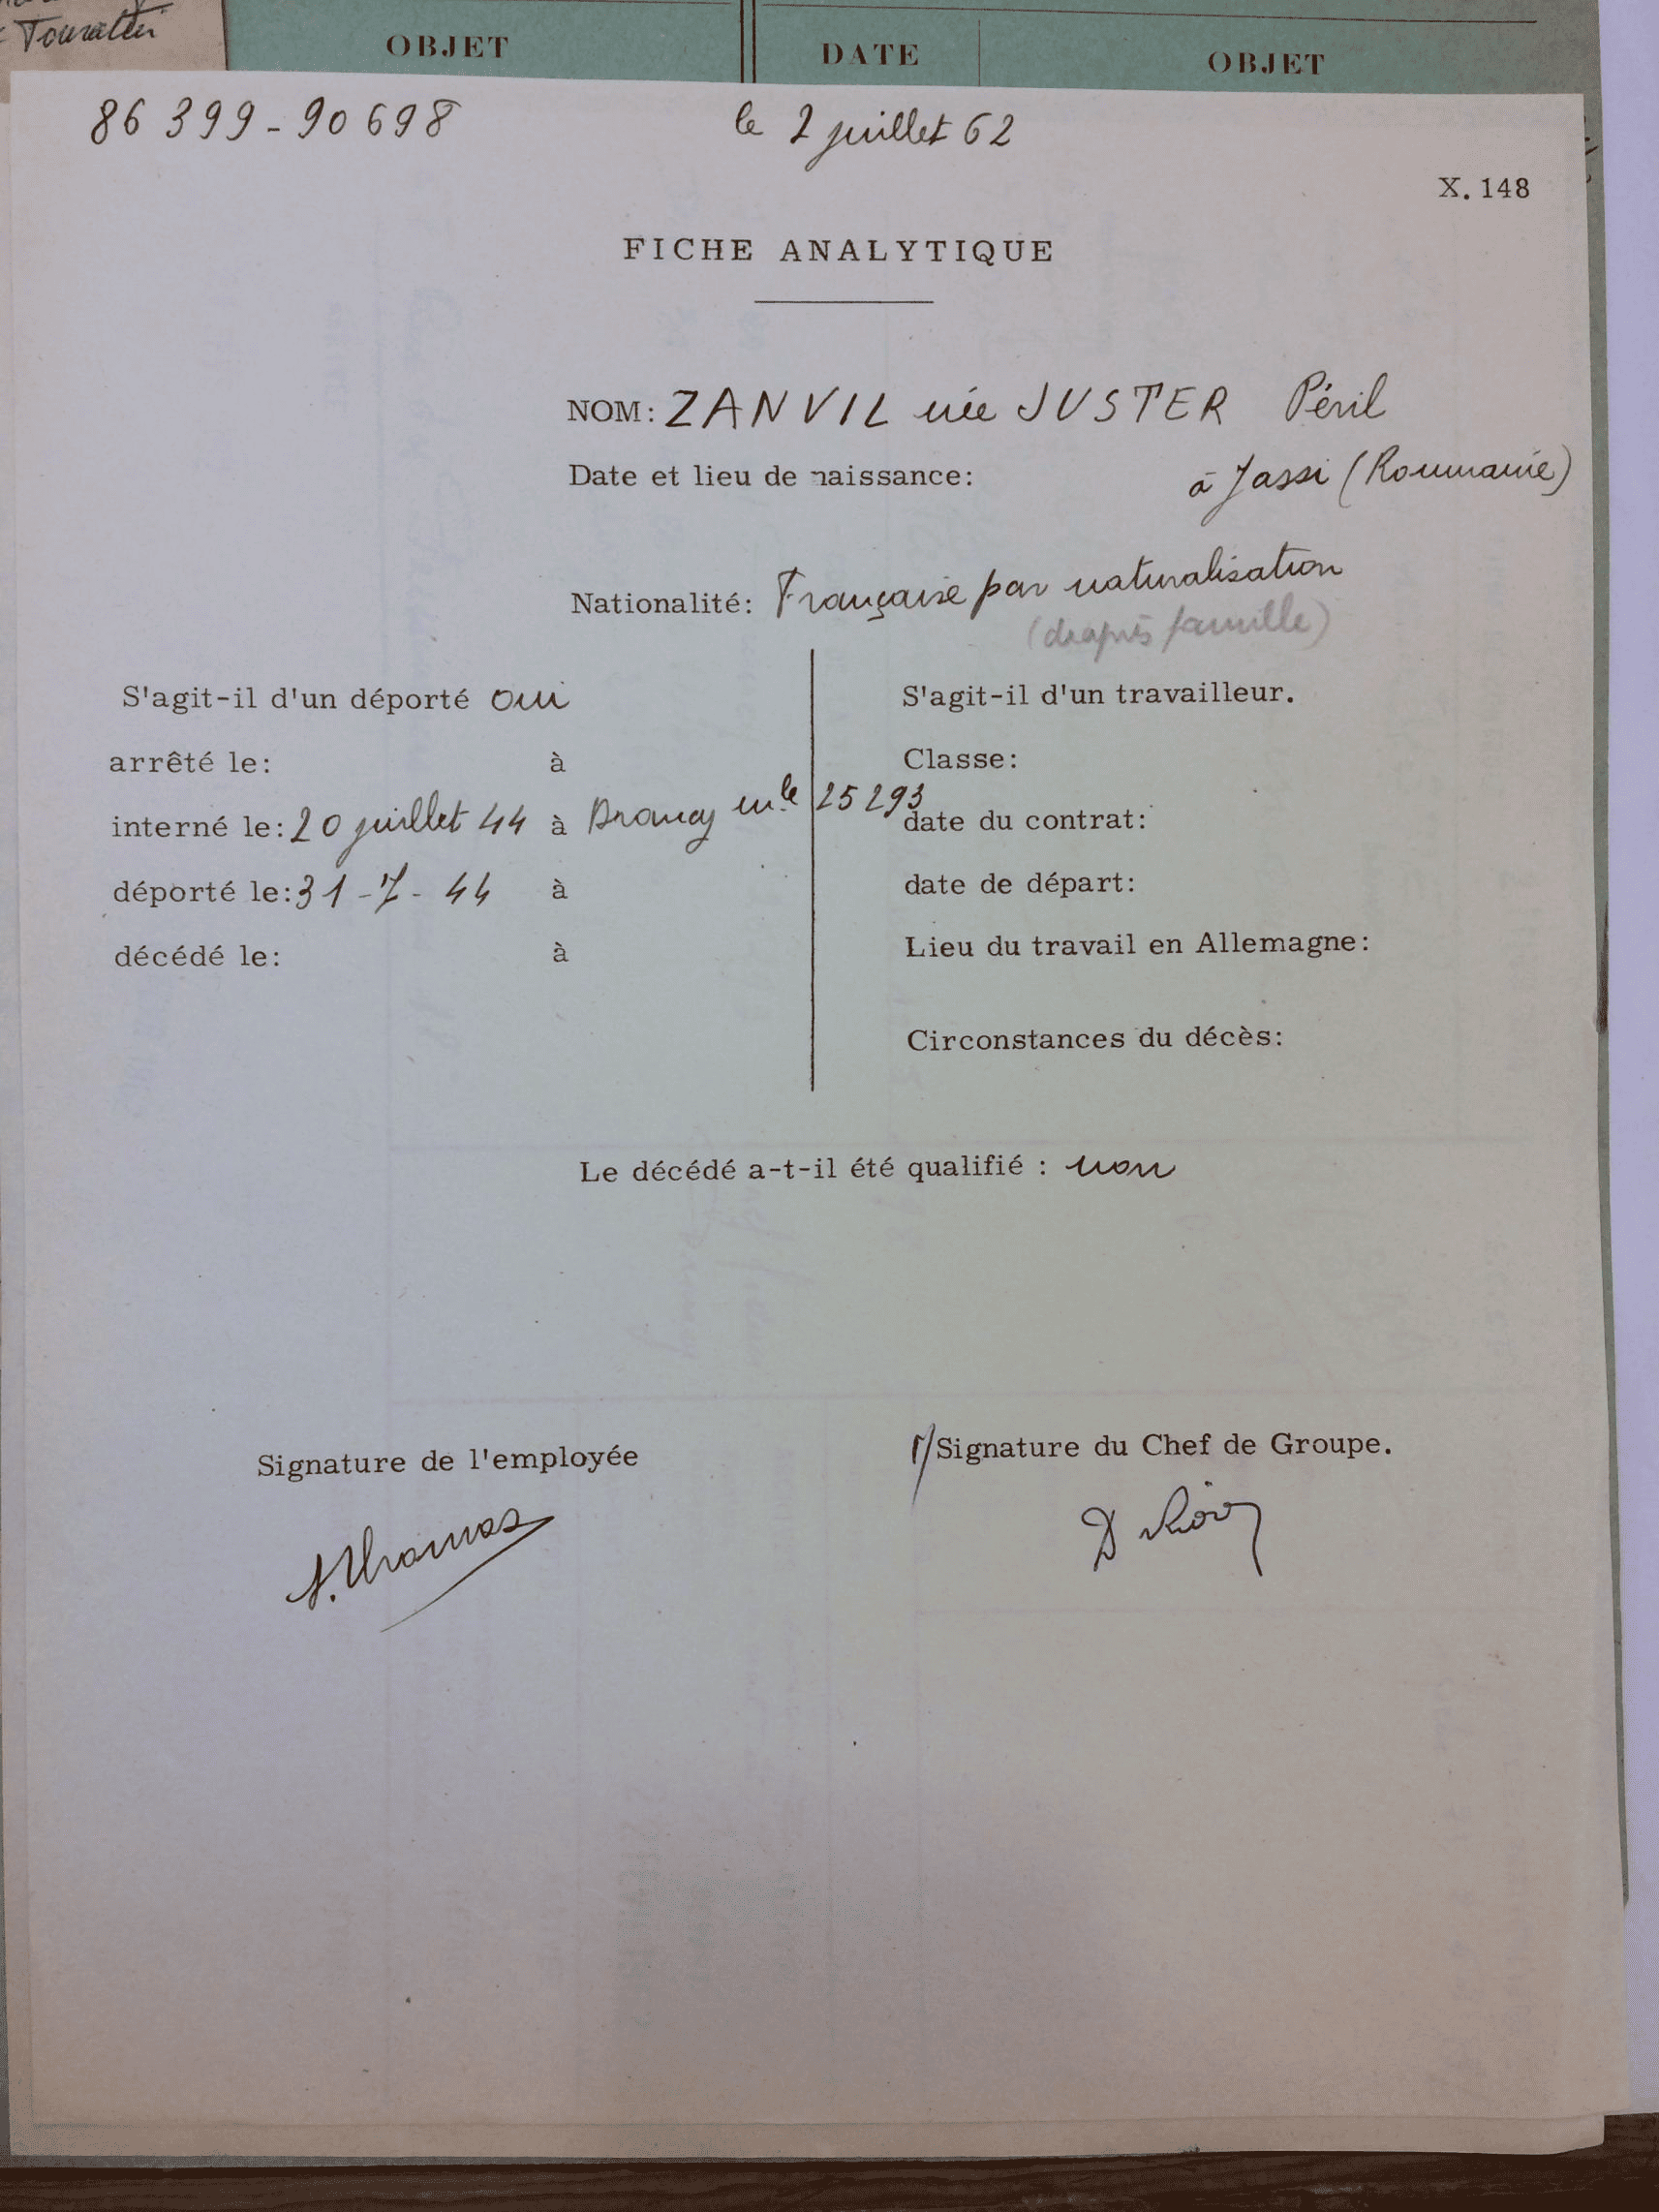 Tourettei
OBJET DATE OBJET
86 399 - 90 698 le 2 juillet 62
X. 148
FICHE ANALYTIQUE
NOM: ZANVIL née JUSTER Péril
Date et lieu de naissance: à Jassi (Roumanie)
Nationalité: Française par naturalisation
(d'après famille)
S'agit-il d'un déporté oui
arrêté le: à
interné le: 20 juillet 44 à Drancy mle 25 293
déporté le: 31-7-44 à
décédé le: à
S'agit-il d'un travailleur.
Classe:
date du contrat:
date de départ:
Lieu du travail en Allemagne:
Circonstances du décès:
Le décédé a-t-il été qualifié : non
Signature de l'employée
Signature du Chef de Groupe.
Thomas